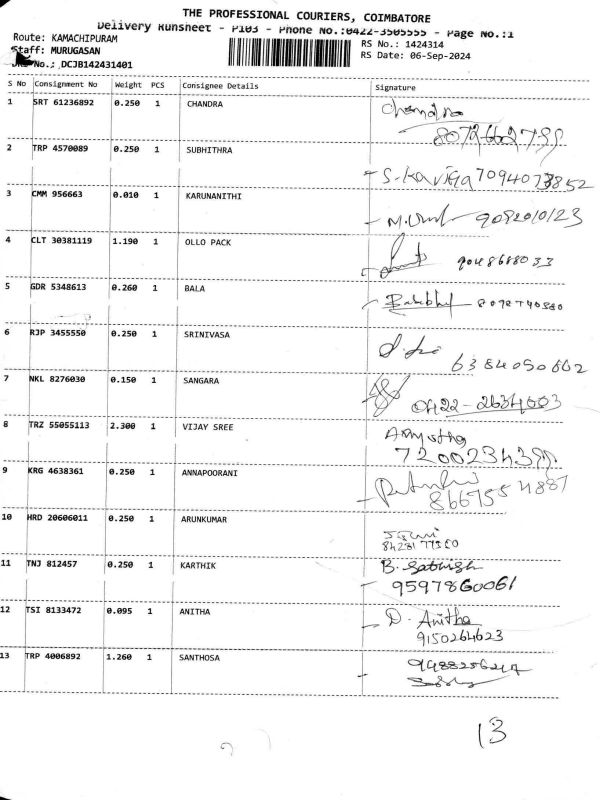 THE PROFESSIONAL COURIERS, COIMBATORE
Delivery Runsheet - P103 - Phone No.:0422-3505555 - Page No.:1
Route: KAMACHIPURAM
RS No.: 1424314
Staff: MURUGASAN
RS Date: 06-Sep-2024
No.: DCJB142431401
S No Consignment No Weight PCS Consignee Details Signature
1 SRT 61236892 0.250 1 CHANDRA Chandra
2 TRP 4570089 0.250 1 SUBHITHRA
S. Kaviya 7094073852
3 CMM 956663 0.010 1 KARUNANITHI
4 CLT 30381119 1.190 1 OLLO PACK
9048688033
5 GDR 5348613 0.260 1 BALA
6 RJP 3455550 0.250 1 SRINIVASA
6384050602
7 NKL 8276030 0.150 1 SANGARA
0422-2634603
8 TRZ 55055113 2.300 1 VIJAY SREE
9 KRG 4638361 0.250 1 ANNAPOORANI
8667554887
10 HRD 20606011 0.250 1 ARUNKUMAR
11 TNJ 812457 0.250 1 KARTHIK B. Sathish
9597860061
12 TSI 8133472 0.095 1 ANITHA D. Anitha
9150264623
13 TRP 4006892 1.260 1 SANTHOSA
13